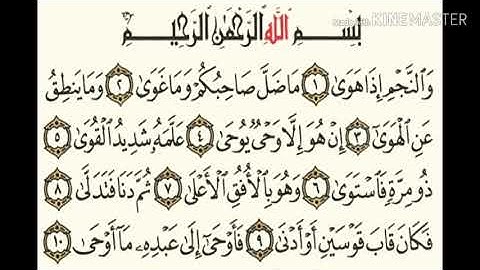 بِسْمِ اللَّهِ الرَّحْمَٰنِ الرَّحِيمِ
Made with KINEMASTER
وَالنَّجْمِ إِذَا هَوَىٰ ١ مَا ضَلَّ صَاحِبُكُمْ وَمَا غَوَىٰ ٢ وَمَا يَنطِقُ
عَنِ الْهَوَىٰ ٣ إِنْ هُوَ إِلَّا وَحْيٌ يُوحَىٰ ٤ عَلَّمَهُ شَدِيدُ الْقُوَىٰ ٥
ذُو مِرَّةٍ فَاسْتَوَىٰ ٦ وَهُوَ بِالْأُفُقِ الْأَعْلَىٰ ٧ ثُمَّ دَنَا فَتَدَلَّىٰ ٨
فَكَانَ قَابَ قَوْسَيْنِ أَوْ أَدْنَىٰ ٩ فَأَوْحَىٰ إِلَىٰ عَبْدِهِ مَا أَوْحَىٰ ١٠